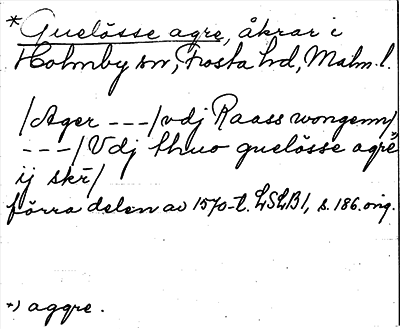 *Guelösse agre, åkrar i
Holmby sn, Frosta hd, Malm. l.
/Ager ---/vdj Raass wongenn/
---/Vdj thuo guelösse agrē
ij skr̄/
förra delen av 1570-t. LSLB1, s. 186. orig.
*) aggre.